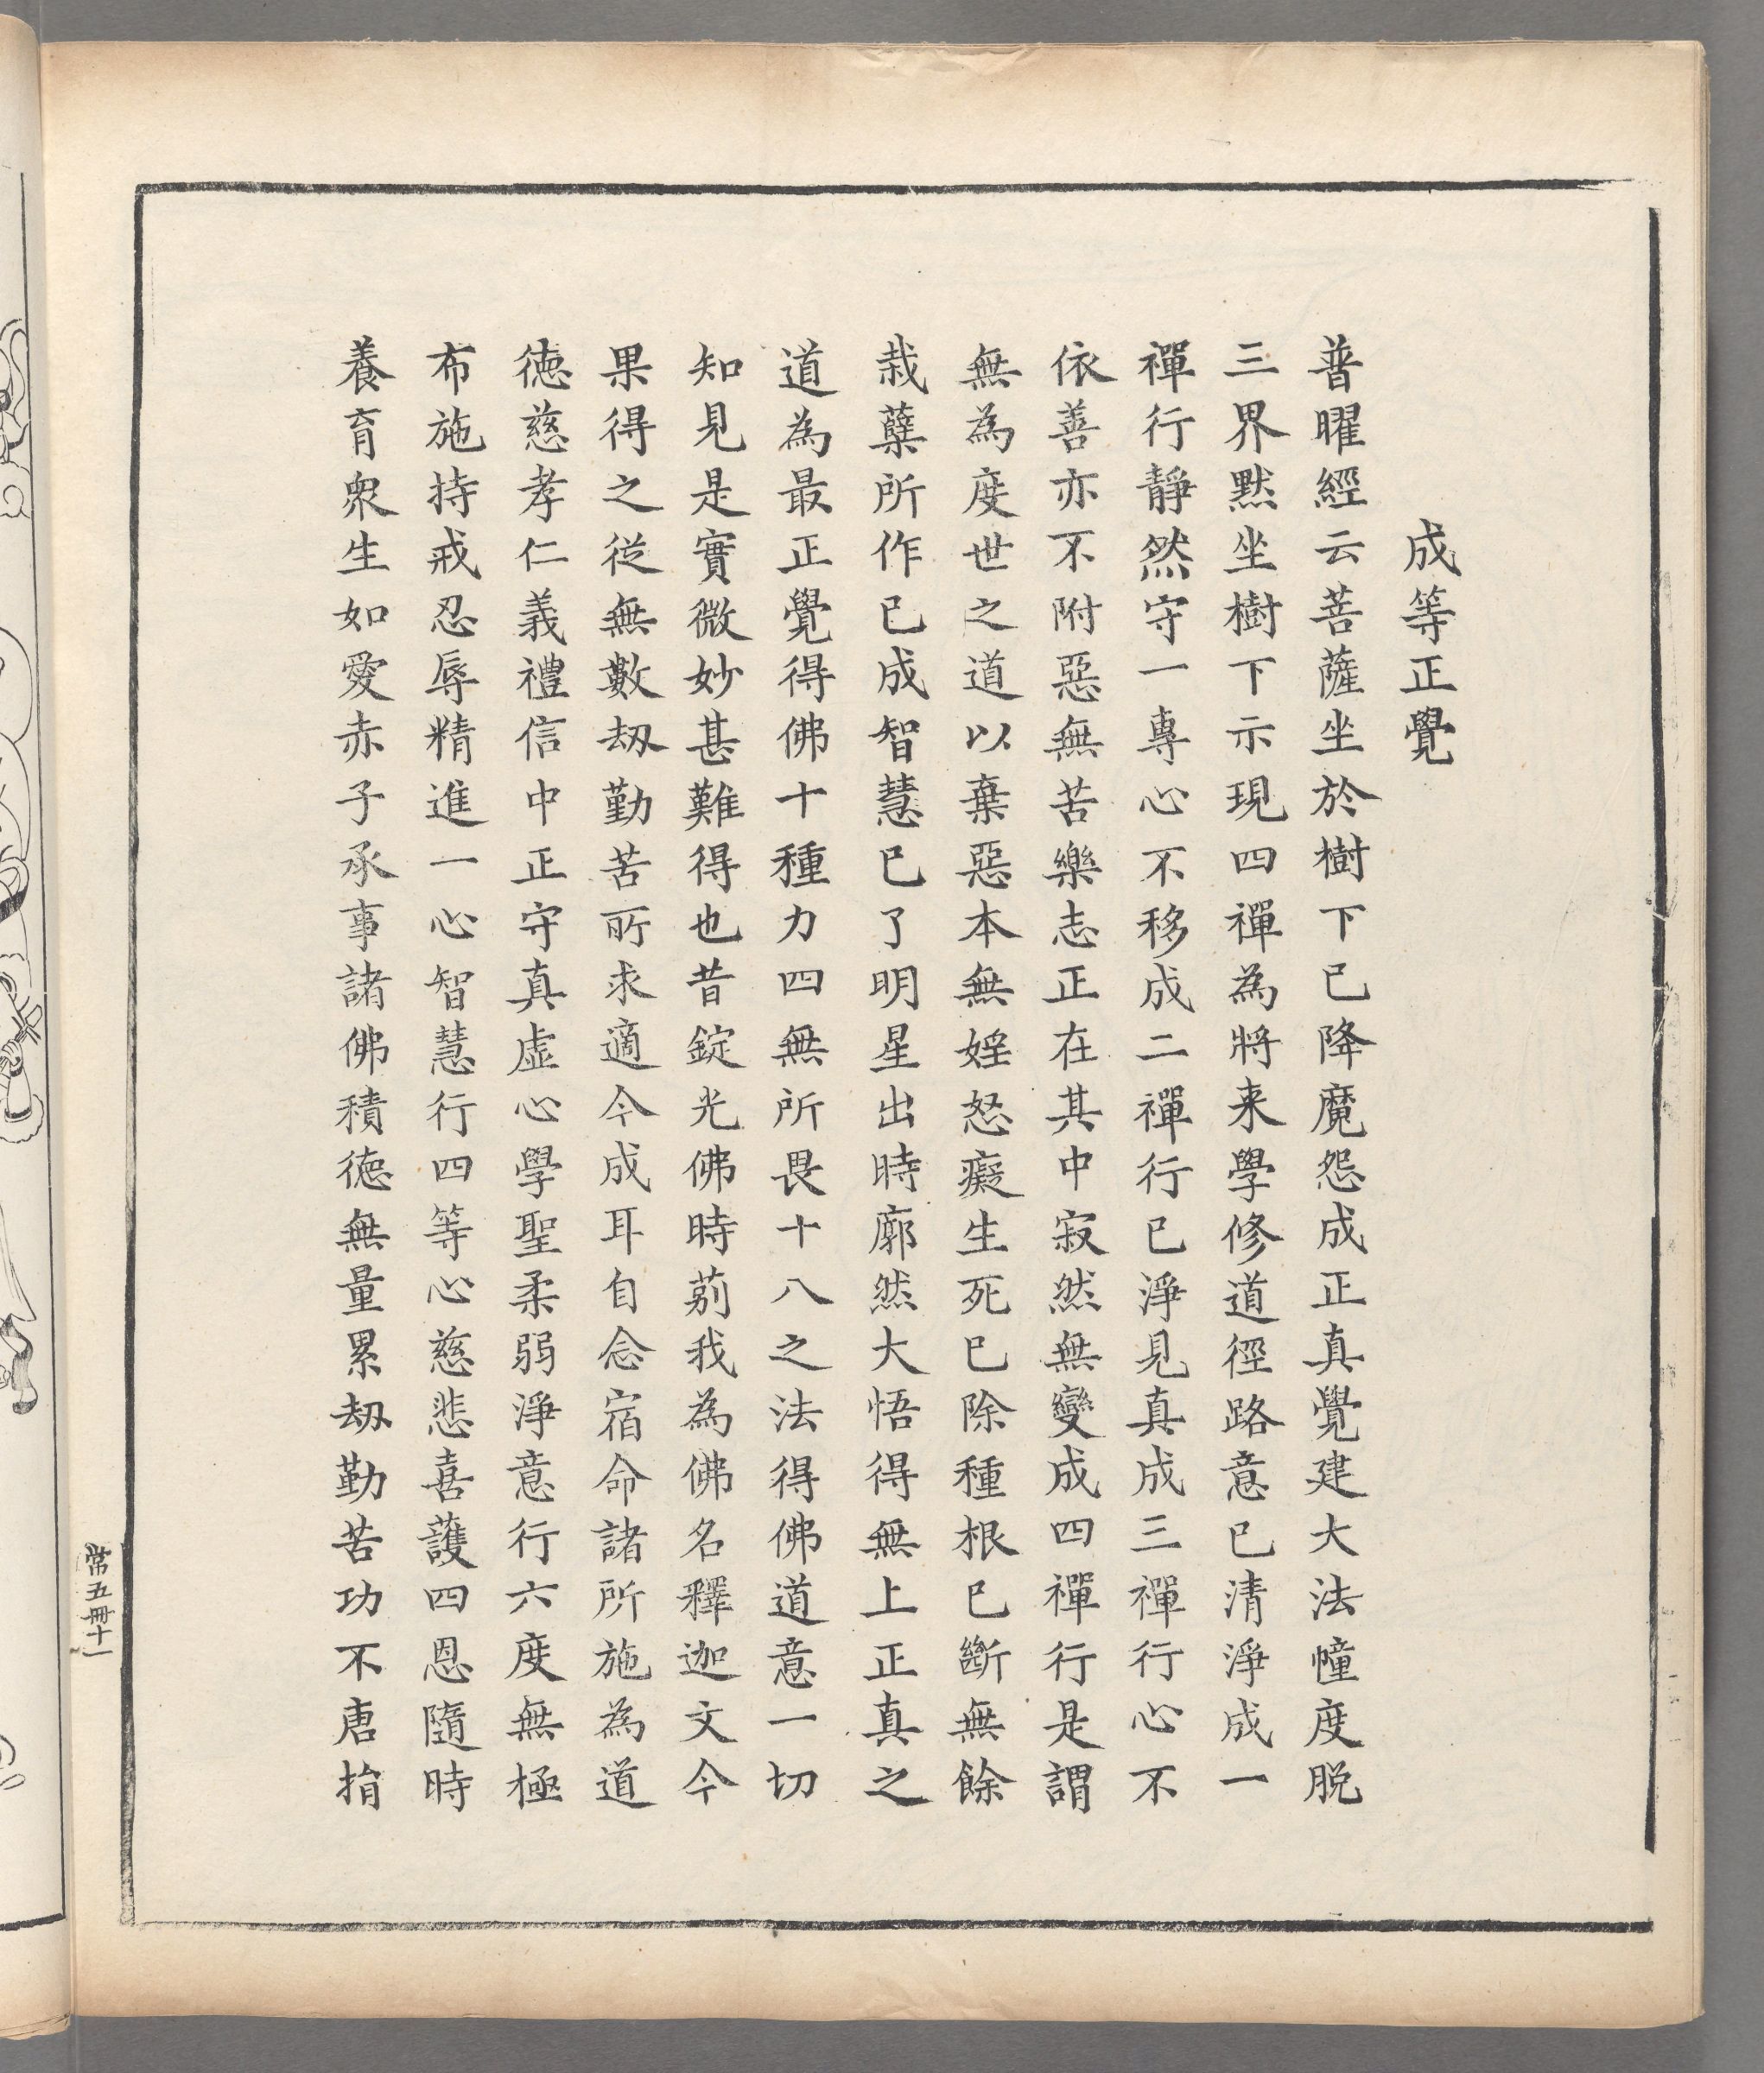 成等正覺
普曜經云菩薩坐於樹下已降魔怨成正真覺建大法幢度脱
三界默坐樹下示現四禪為將来學修道徑路意已清淨成一
禪行靜然守一專心不移成二禪行已淨見真成三禪行心不
依善亦不附惡無苦樂志正在其中寂然無變成四禪行是謂
無為度世之道以棄惡本無婬怒癡生死已除種根已斷無餘
栽蘖所作已成智慧已了明星出時廓然大悟得無上正真之
道為最正覺得佛十種力四無所畏十八之法得佛道意一切
知見是實微妙甚難得也昔錠光佛時莂我為佛名釋迦文今
果得之從無數劫勤苦所求適今成耳自念宿命諸所施為道
徳慈孝仁義禮信中正守真虛心學聖柔弱淨意行六度無極
布施持戒忍辱精進一心智慧行四等心慈悲喜護四恩隨時
養育衆生如愛赤子承事諸佛積徳無量累劫勤苦功不唐捐
常五冊十一